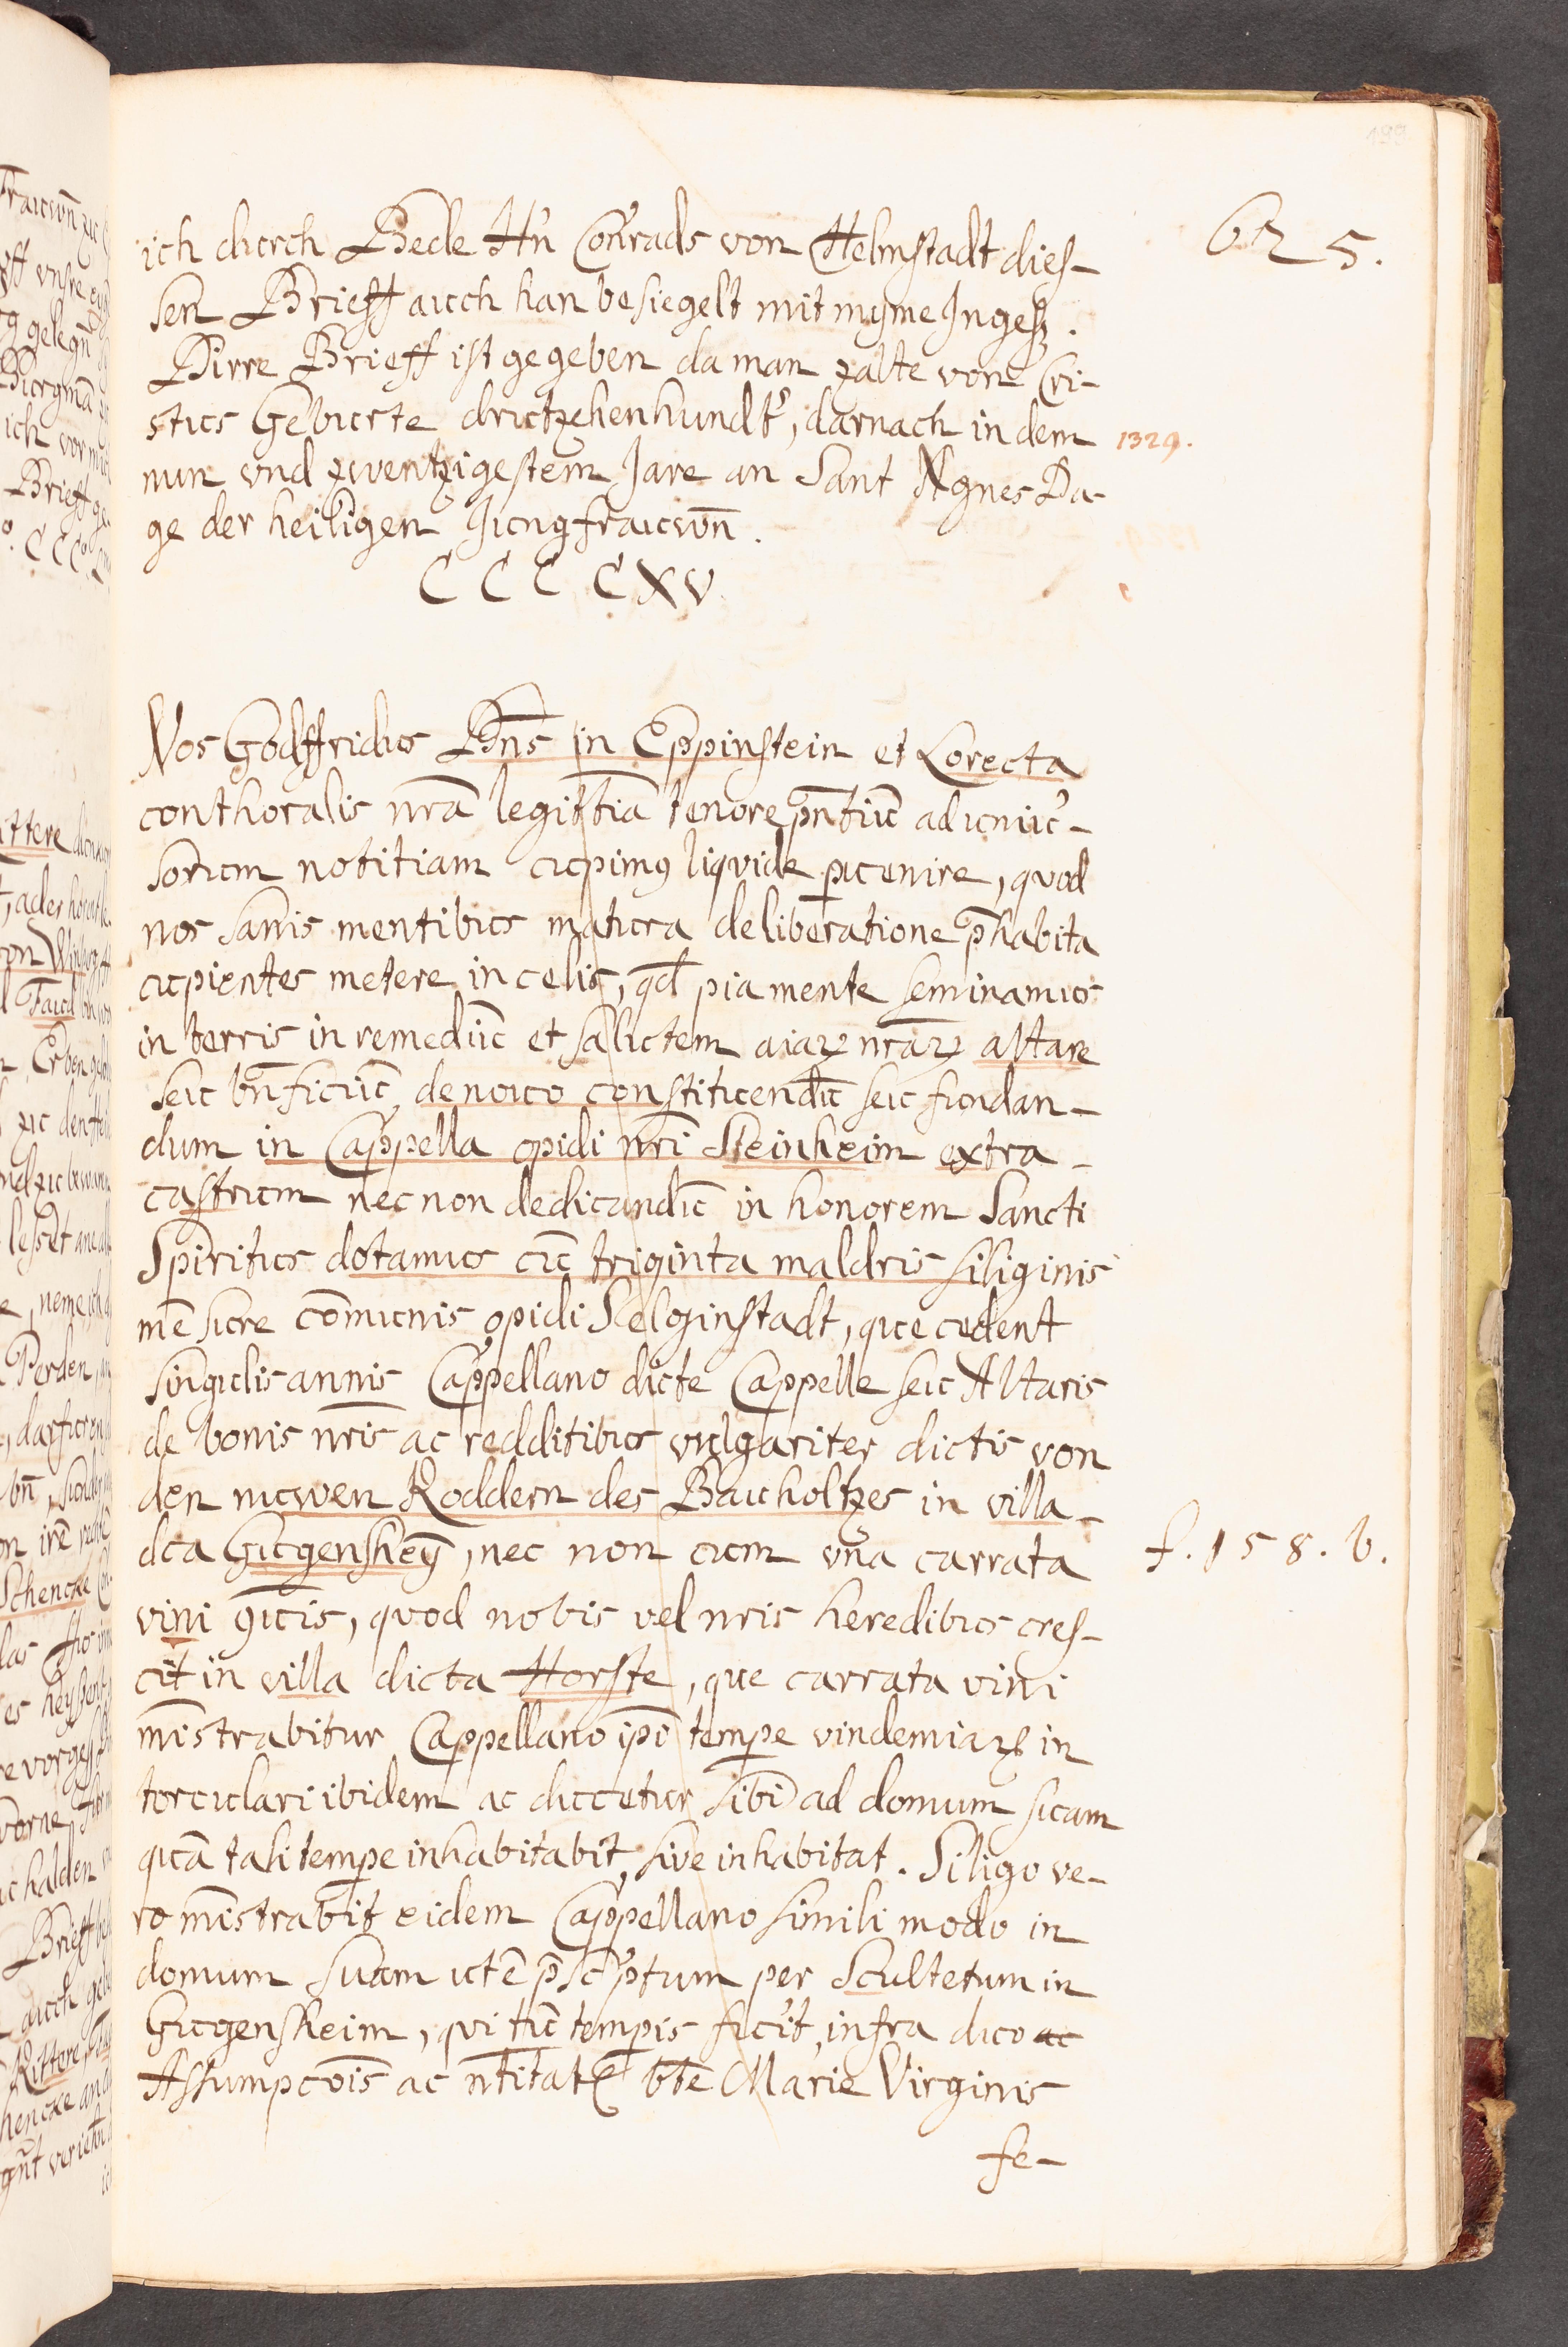 199
625.
ich durch Bede Hn̄ Conrads von Helmstadt dies-
sen Brieff auch han besiegelt mit myme Ingeß.
Dirre Brieff ist gegeben da man zalte von Cri-
stus Geburte drutzehenhundt, darnach in dem
1329.
nun vnd zwentzigestem Jare an Sant Agnes Da-
ge der heiligen Jungfrauwn̄.
CCCCXV
Nos Godffridus Dn̄s in Eppinstein et Lorecta
conthoralis nr̄a legittīa tenore pn̄tiū ad uniū-
sorum notitiam cupimus liqvide puenire, qvod
nos sanis mentibus matura deliberatione p̄habita
cupientes metere in celis, qd̄ pia mente seminamus
in terris in remediū et salutem aiaꝝ nr̄aꝝ altare
seu bn̄ficiū de nouo constituendū seu fundan-
dum in Cappella opidi nr̄i Steinheim extra-
castrum nec non dedicandū in honorem Sancti
Spiritus dotamus cū triginta maldris siliginis
mēsure cōmunis opidi Selginstadt, que cedent
singulis annis Cappellano dicte Cappelle seu Altaris
de bonis nr̄is ac redditibus vulgariter dictis von
den nuwen Roddern des Buchholtzes in villa-
dca Gugensheÿ, nec non cum vna carrata
f. 158. b.
vini ꝯuis, quod nobis vel nris heredibus cres-
cit in villa dicta Horste, que carrata vini
mīstrabitur Cappellano ipī tempe vindemiaꝝ in
torculari ibidem ac ducetur sibi ad domum suam
quā tali tempe inhabitabit, sive inhabitat. Siligo ve-
ro mīstrabit eidem Cappellano simili modo in
domum suam ut ē p̄scptum per Scultetum in
Gugensheim, qui tūc tempis fuit, infra duo ac
Assumpcōis ac n̄titatꝭ bte Marie Virginis
fe-